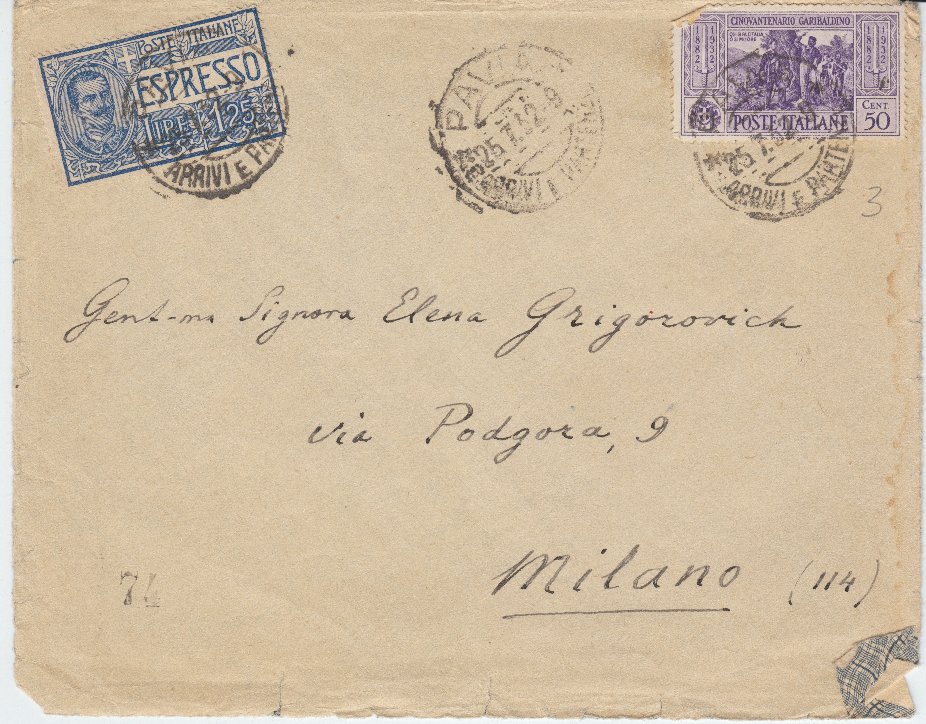 POSTE ITALIANE
ESPRESSO
LIRE 1,25
ARRIVI E PAR
PAVIA
25.7.32-8
ARRIVI E PARTENZE
CINQUANTENARIO GARIBALDINO
1882 1932 1882 1932
QUI SI FA L'ITALIA
O SI MUORE
POSTE ITALIANE
CENT.
50
25.7.32
ARRIVI E PARTE
3
Gent-ma Signora Elena Grigorovich
via Podgora, 9
Milano (114)
74